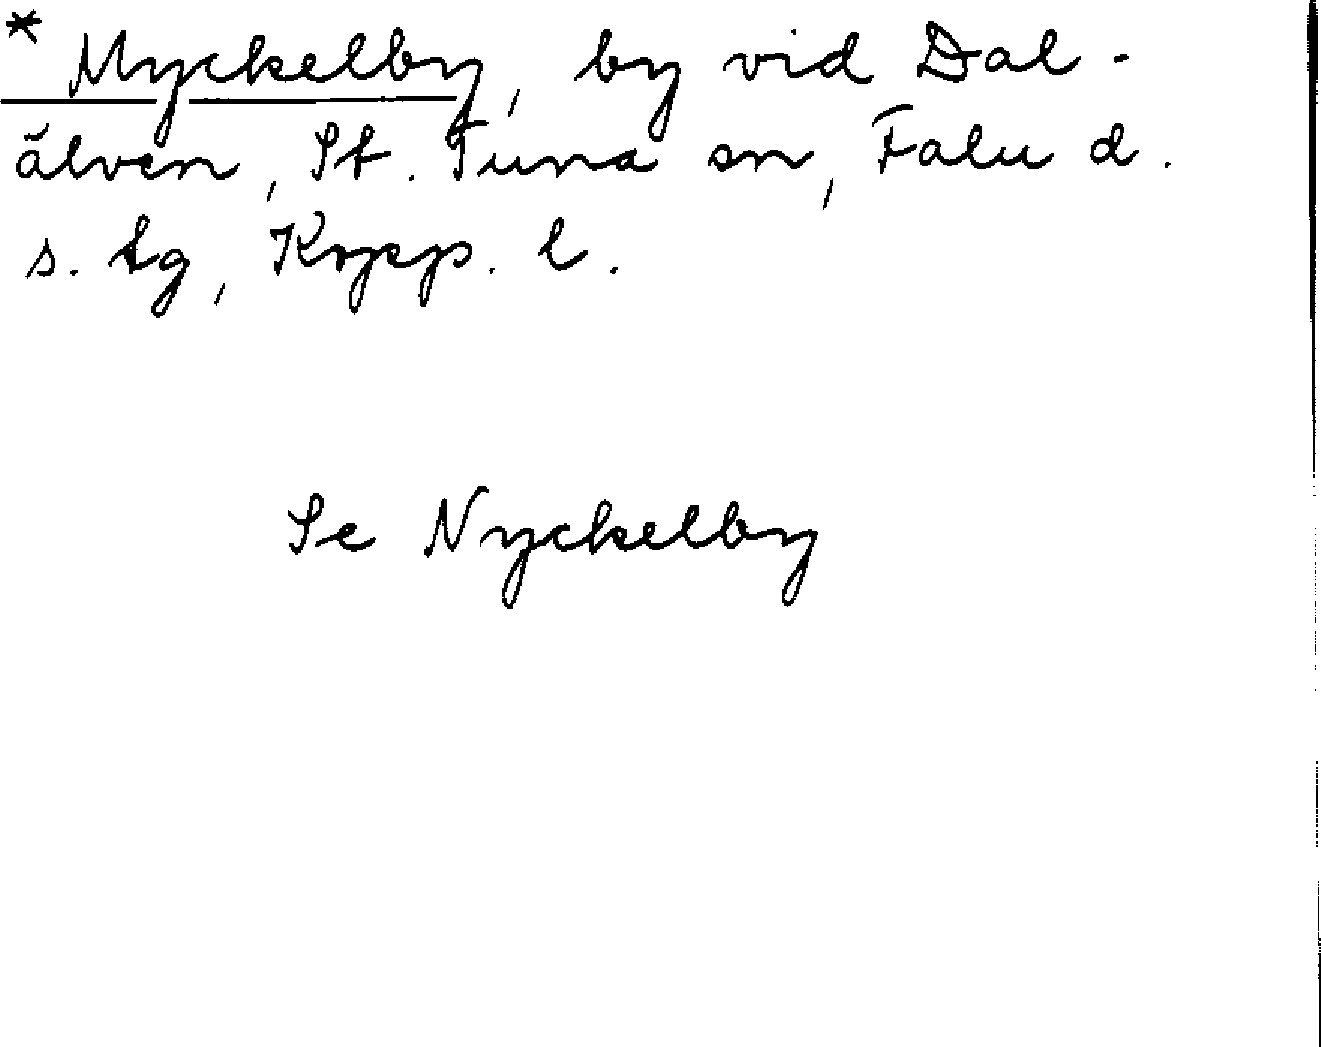 * Myckelby, by vid Dal-
älven, St. Tuna sn, Falu d.
s. tg, Kopp. l.
Se Nyckelby